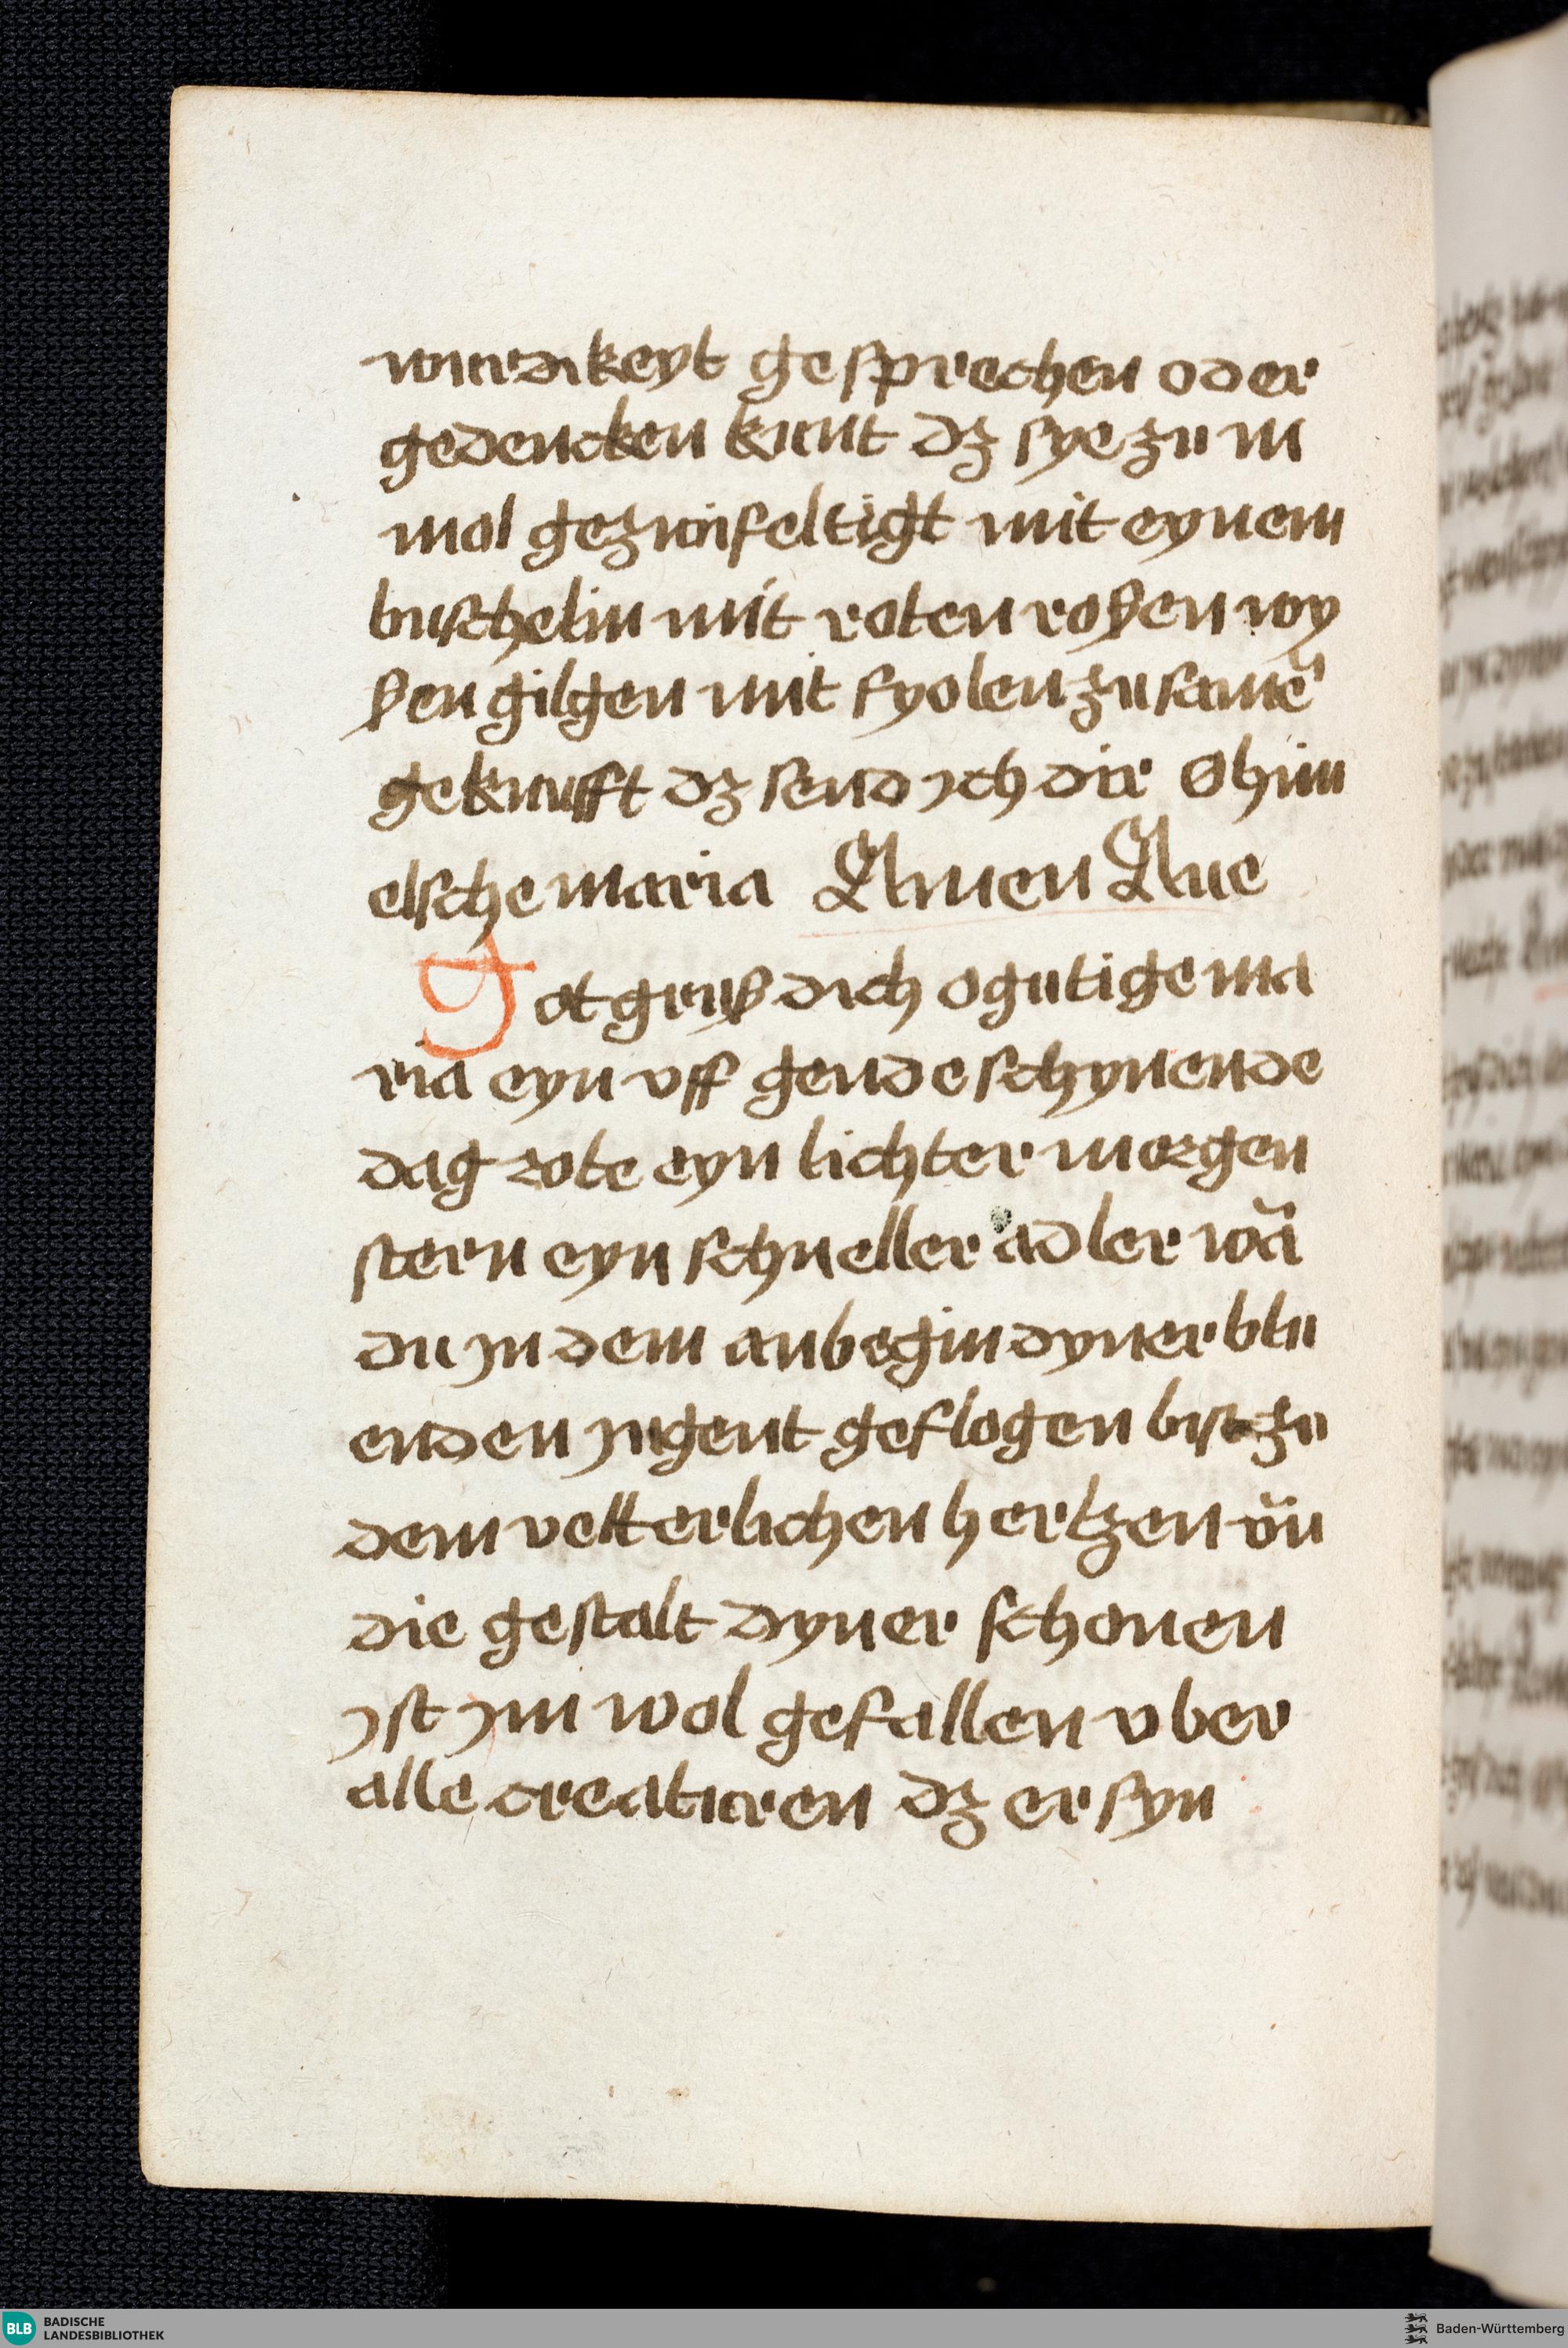 wurdikeyt gesprechen oder
gedencken kunt dz sye zu m
mol gezwifeltigt mit eynem
buschelin mit roten roßen wy
ßen gilgen mit fyolen zu samē
geknufft dz send jch dir O him
elsche maria Amen Aue
Got gruß dich o gutige ma
ria eyn vff gende schynende
dag rote eyn lichter morgen
stern eyn schneller adler wā
du jn dem anbegin dyner blu
enden jugent geflogen bist zu
dem vetterlichen hertzen vn̄
die gestalt dyner schonen
jst jm wol gefallen vber
alle creaturen dz er syn
BLB BADISCHE
LANDESBIBLIOTHEK
Baden-Württemberg